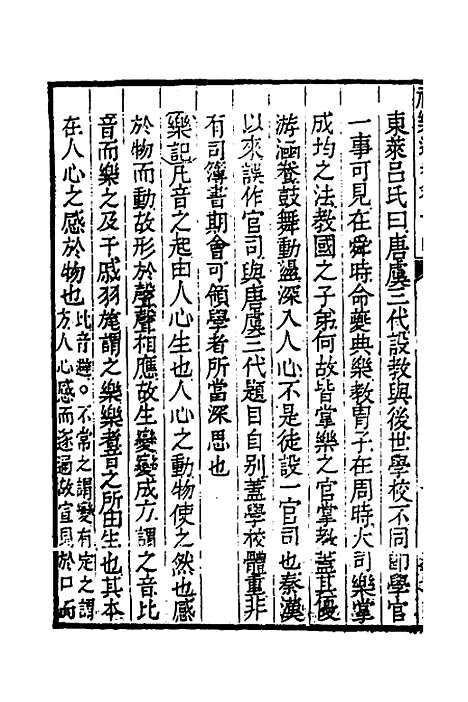 東萊呂氏曰唐虞三代設教與後世學校不同即學官
一事可見在舜時命夔典樂教胄子在周時大司樂掌
成均之法教國之子弟何故皆掌樂之官掌教蓋其優
游涵養鼓舞動盪深入人心不是徒設一官司也秦漢
以來誤作官司與唐虞三代題目自别蓋學校體重非
有司簿書期會可領學者所當深思也
樂記凡音之起由人心生也人心之動物使之然也感
於物而動故形於聲聲相應故生變變成方謂之音比
音而樂之及干戚羽旄謂之樂樂者音之所由生也其本
在人心之感於物也比音避。不常之謂變有定之謂
方人心感而遂通故宣見於口而